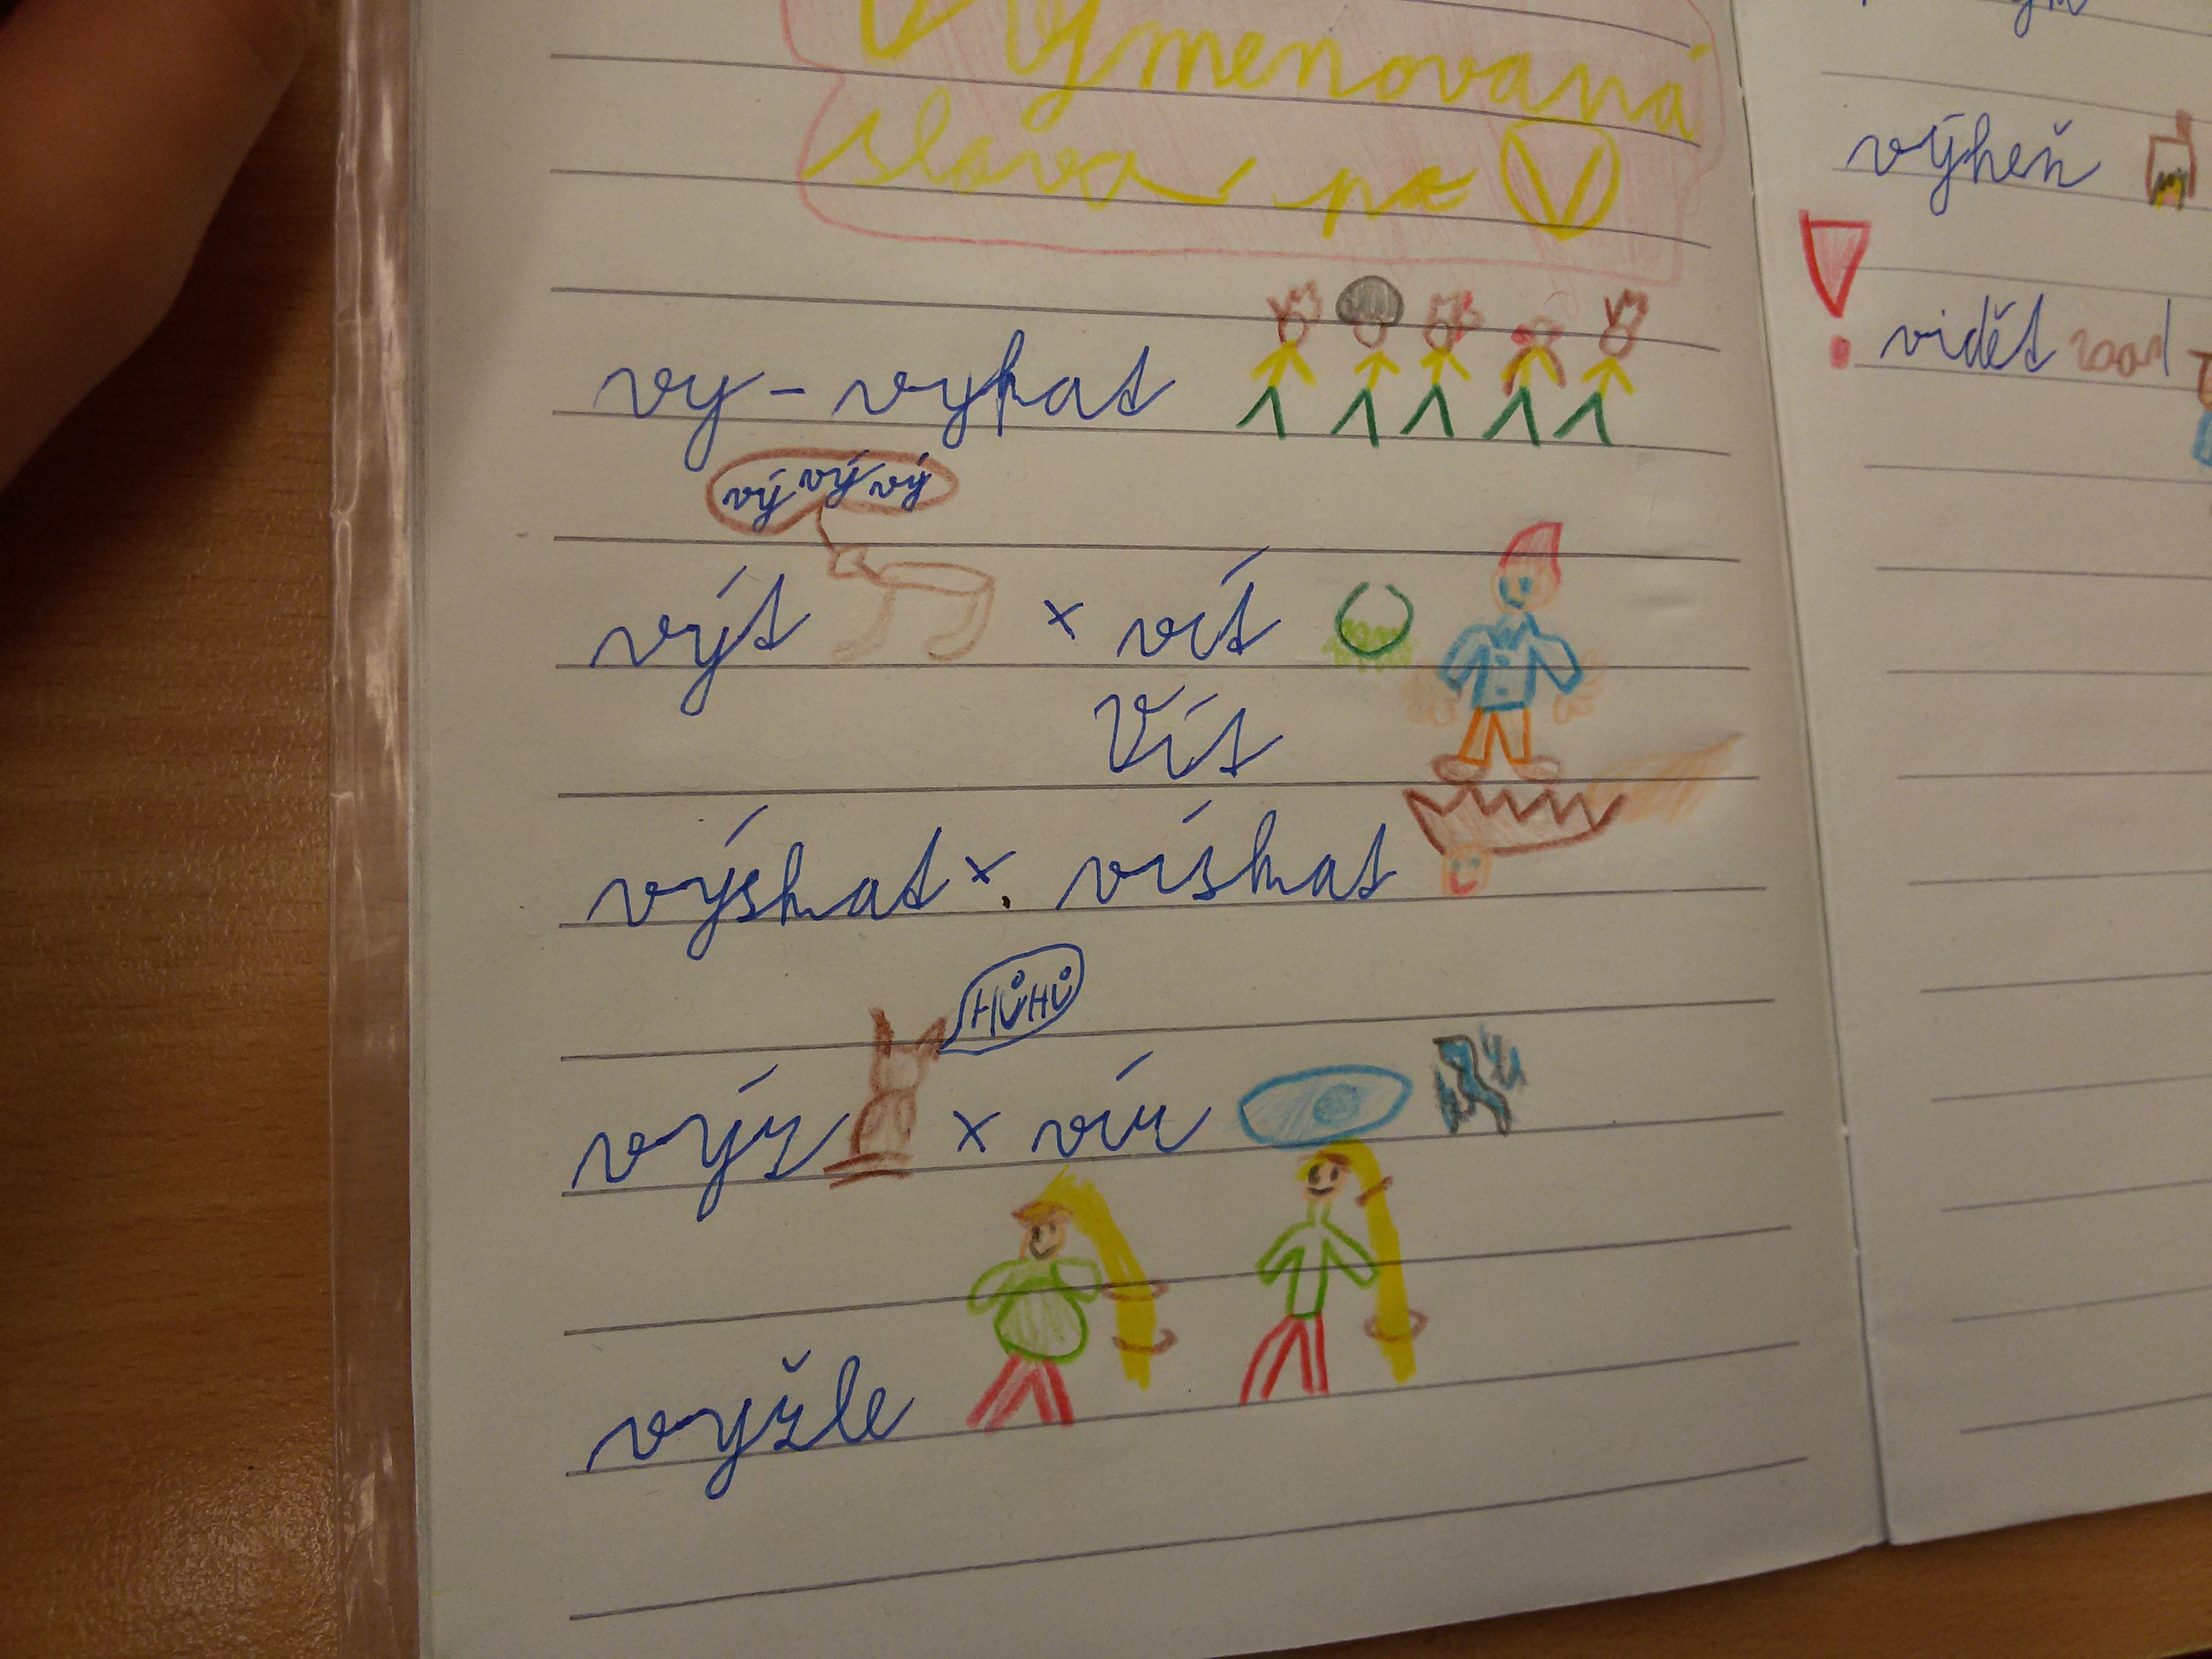 Vyjmenovaná
slova po V
vy - vykat
vý vý vý
výt x vít
Vít
výskat x vískat
HŮHŮ
výr x vír
vyžle
výheň
! vidět